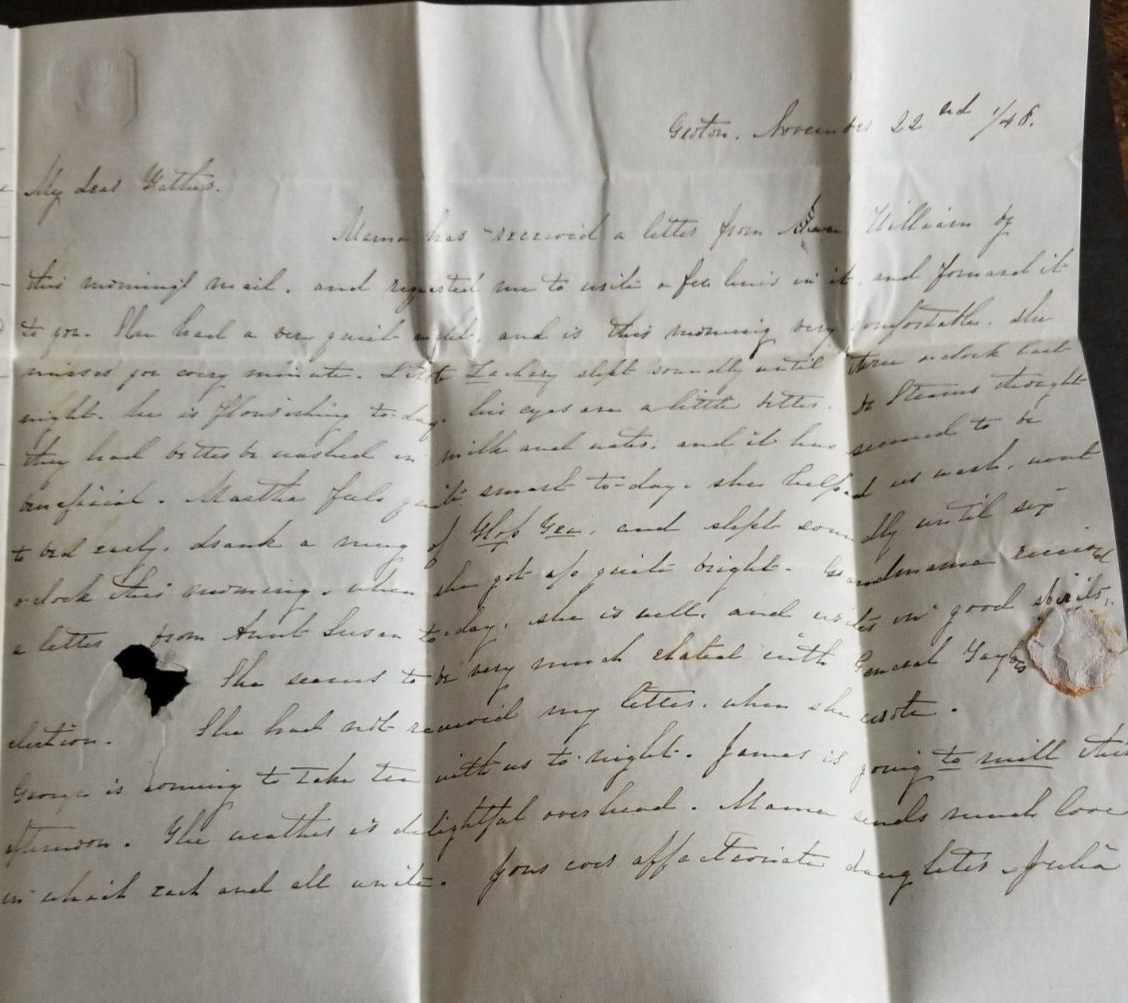 Groton, November 22nd 1/48.
My dear Father.
Mama has received a letter from William by
this morning's mail, and requested me to write a few lines in it, and forward it
to you. She had a very quiet night, and is this morning very comfortable. she
misses you every minute. Little Zachary slept soundly until three o'clock last
night. he is flourishing to-day. his eyes are a little better. Dr Stearns thought
they had better be washed in milk and water, and it has seemed to be
beneficial. Martha feels quite smart to-day. she helped us wash, went
to bed early, drank a mug of Hop Tea, and slept soundly until six
o'clock this morning, when she got up quite bright. Grandmama received
a letter from Aunt Susan to-day. she is well, and writes in good spirits,
She seems to be very much elated with General Taylor's
election. She had not received my letter, when she wrote.
George is coming to take tea with us to-night. James is going to mill this
afternoon. The weather is delightful overhead. Mama sends much love
in which each and all unite. Your ever affectionate daughter Julia